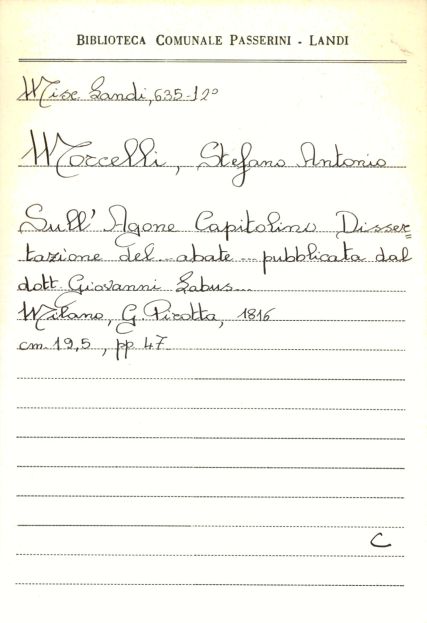 BIBLIOTECA COMUNALE PASSERINI - LANDI
Misc. Landi, 635-12°
Morcelli, Stefano Antonio
Sull' Agone Capitolino Disser=
tazione del .. abate .. pubblicata dal
dott. Giovanni Labus...
Milano, G. Pirotta, 1816
cm. 19,5, pp. 47
C